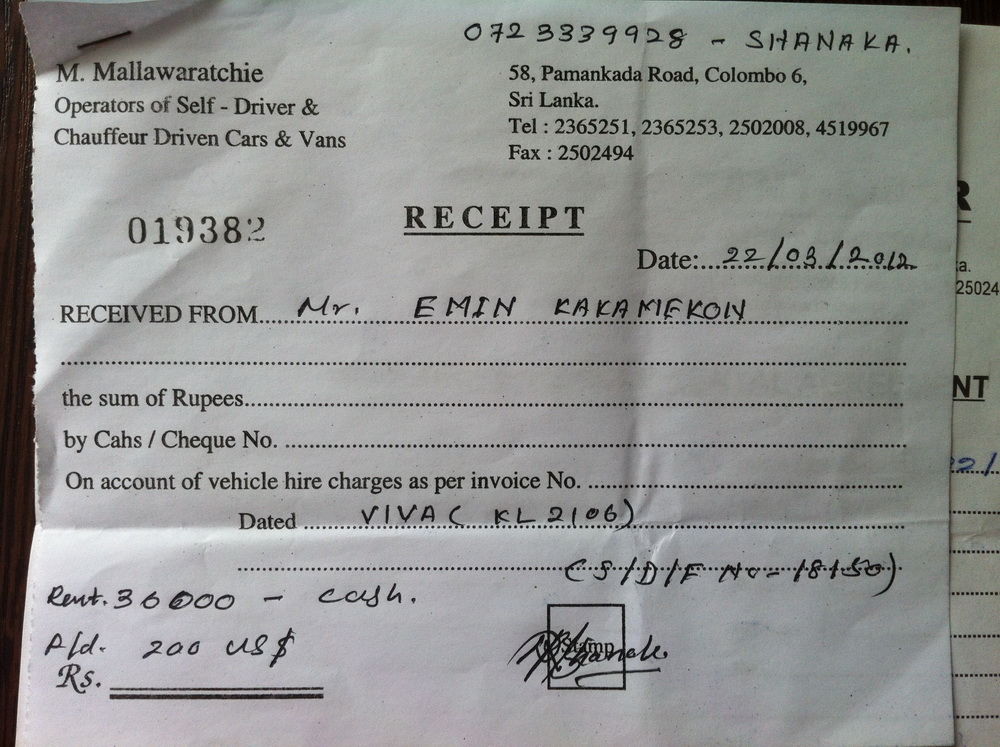 0723339928 - SHANAKA.
M. Mallawaratchie
Operators of Self - Driver &
Chauffeur Driven Cars & Vans
58, Pamankada Road, Colombo 6,
Sri Lanka.
Tel : 2365251, 2365253, 2502008, 4519967
Fax : 2502494
019382
RECEIPT
Date:...22/03/2012
RECEIVED FROM....Mr. EMIN KAKAMEKON
the sum of Rupees
by Cahs / Cheque No.
On account of vehicle hire charges as per invoice No.
Dated VIVA ( KL 2106)
(S/D/F No - 18150)
Rent. 36000 - cash.
P/d. 200 US$
Rs.
Stamp
R
a.
25024
NT
22/